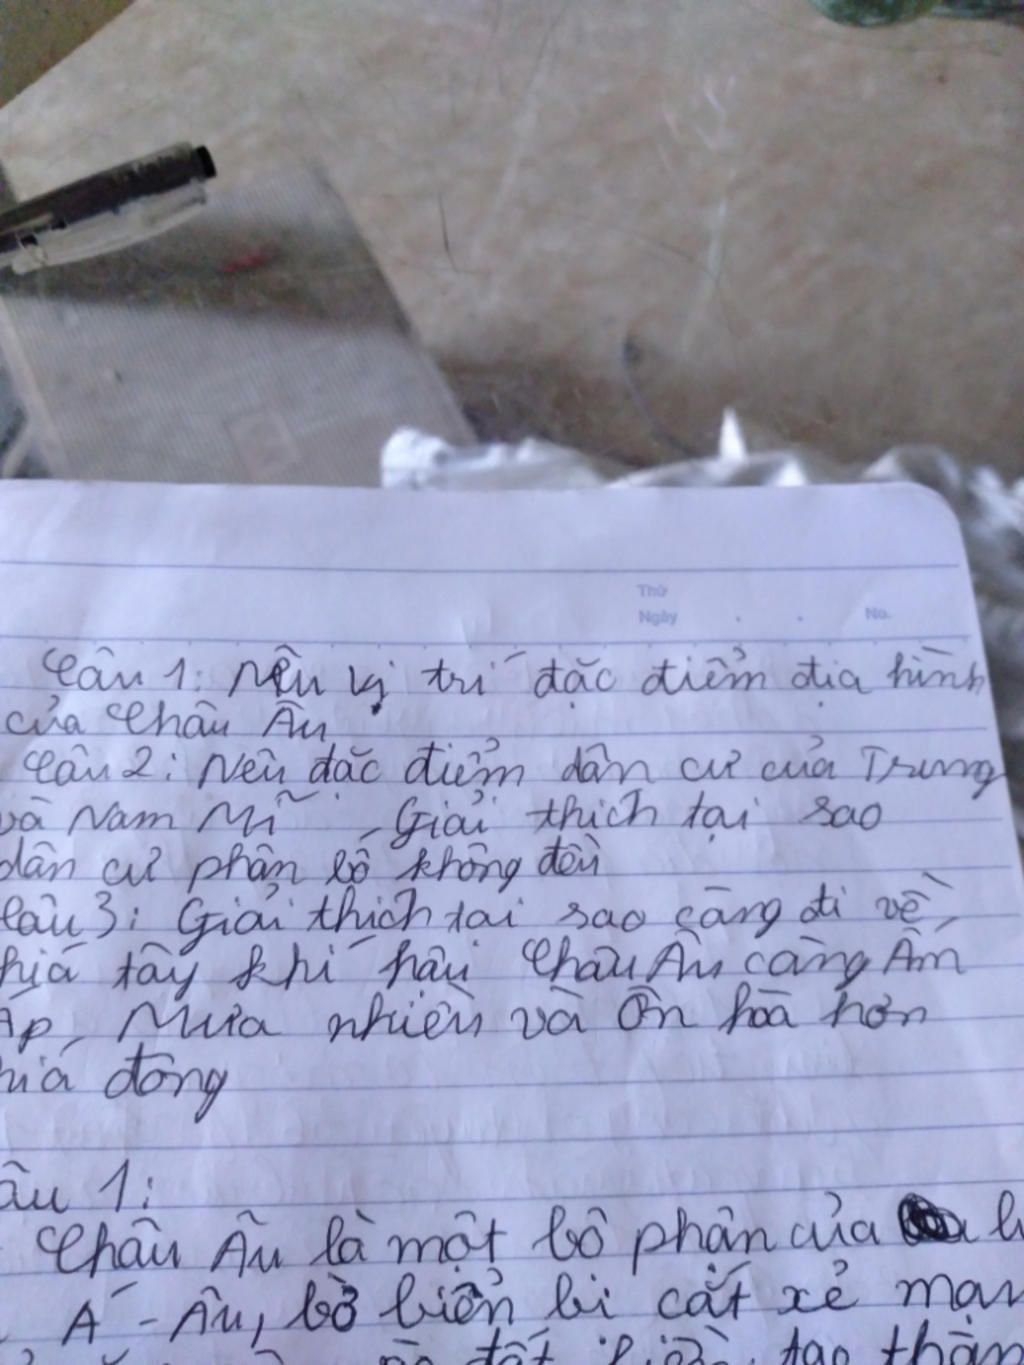 Thứ
Ngày . . No.
Câu 1: Nêu vị trí đặc điểm địa hình
của Châu Âu
Câu 2: Nêu đặc điểm dân cư của Trung
và Nam Mĩ, Giải thích tại sao
dân cư phân bố không đều
Câu 3: Giải thích tai sao càng đi về
phía tây khí hậu Châu Âu càng Ấm
Áp, Mưa nhiều và Ôn hoà hơn
phía đông
Câu 1:
Châu Âu là một bộ phận của
Á - Âu, bờ biển bi cắt xẻ mạn
đất liền, tạo thàn